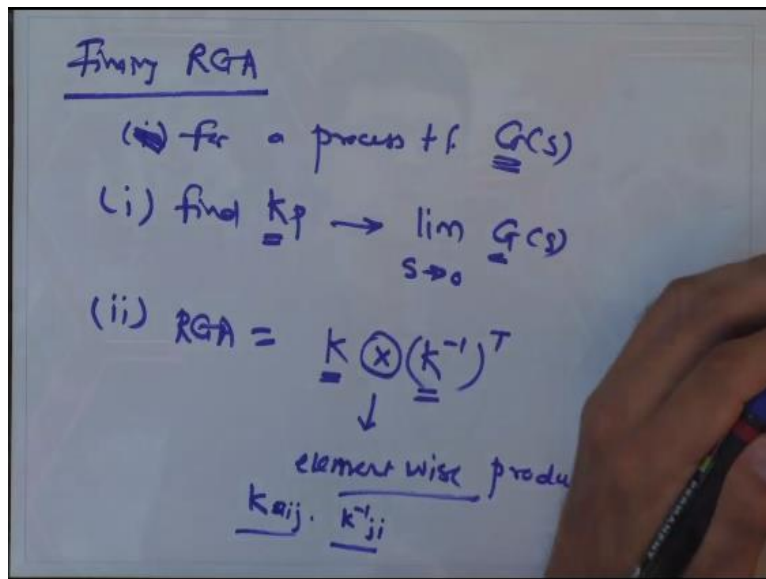 Finding RGA
(i) for a process t f. G(s)
(i) find Kp → lim G(s)
s→0
(ii) RGA = K ⊗ (K⁻¹)ᵀ
↓
element wise produ
Kij. K⁻¹ji